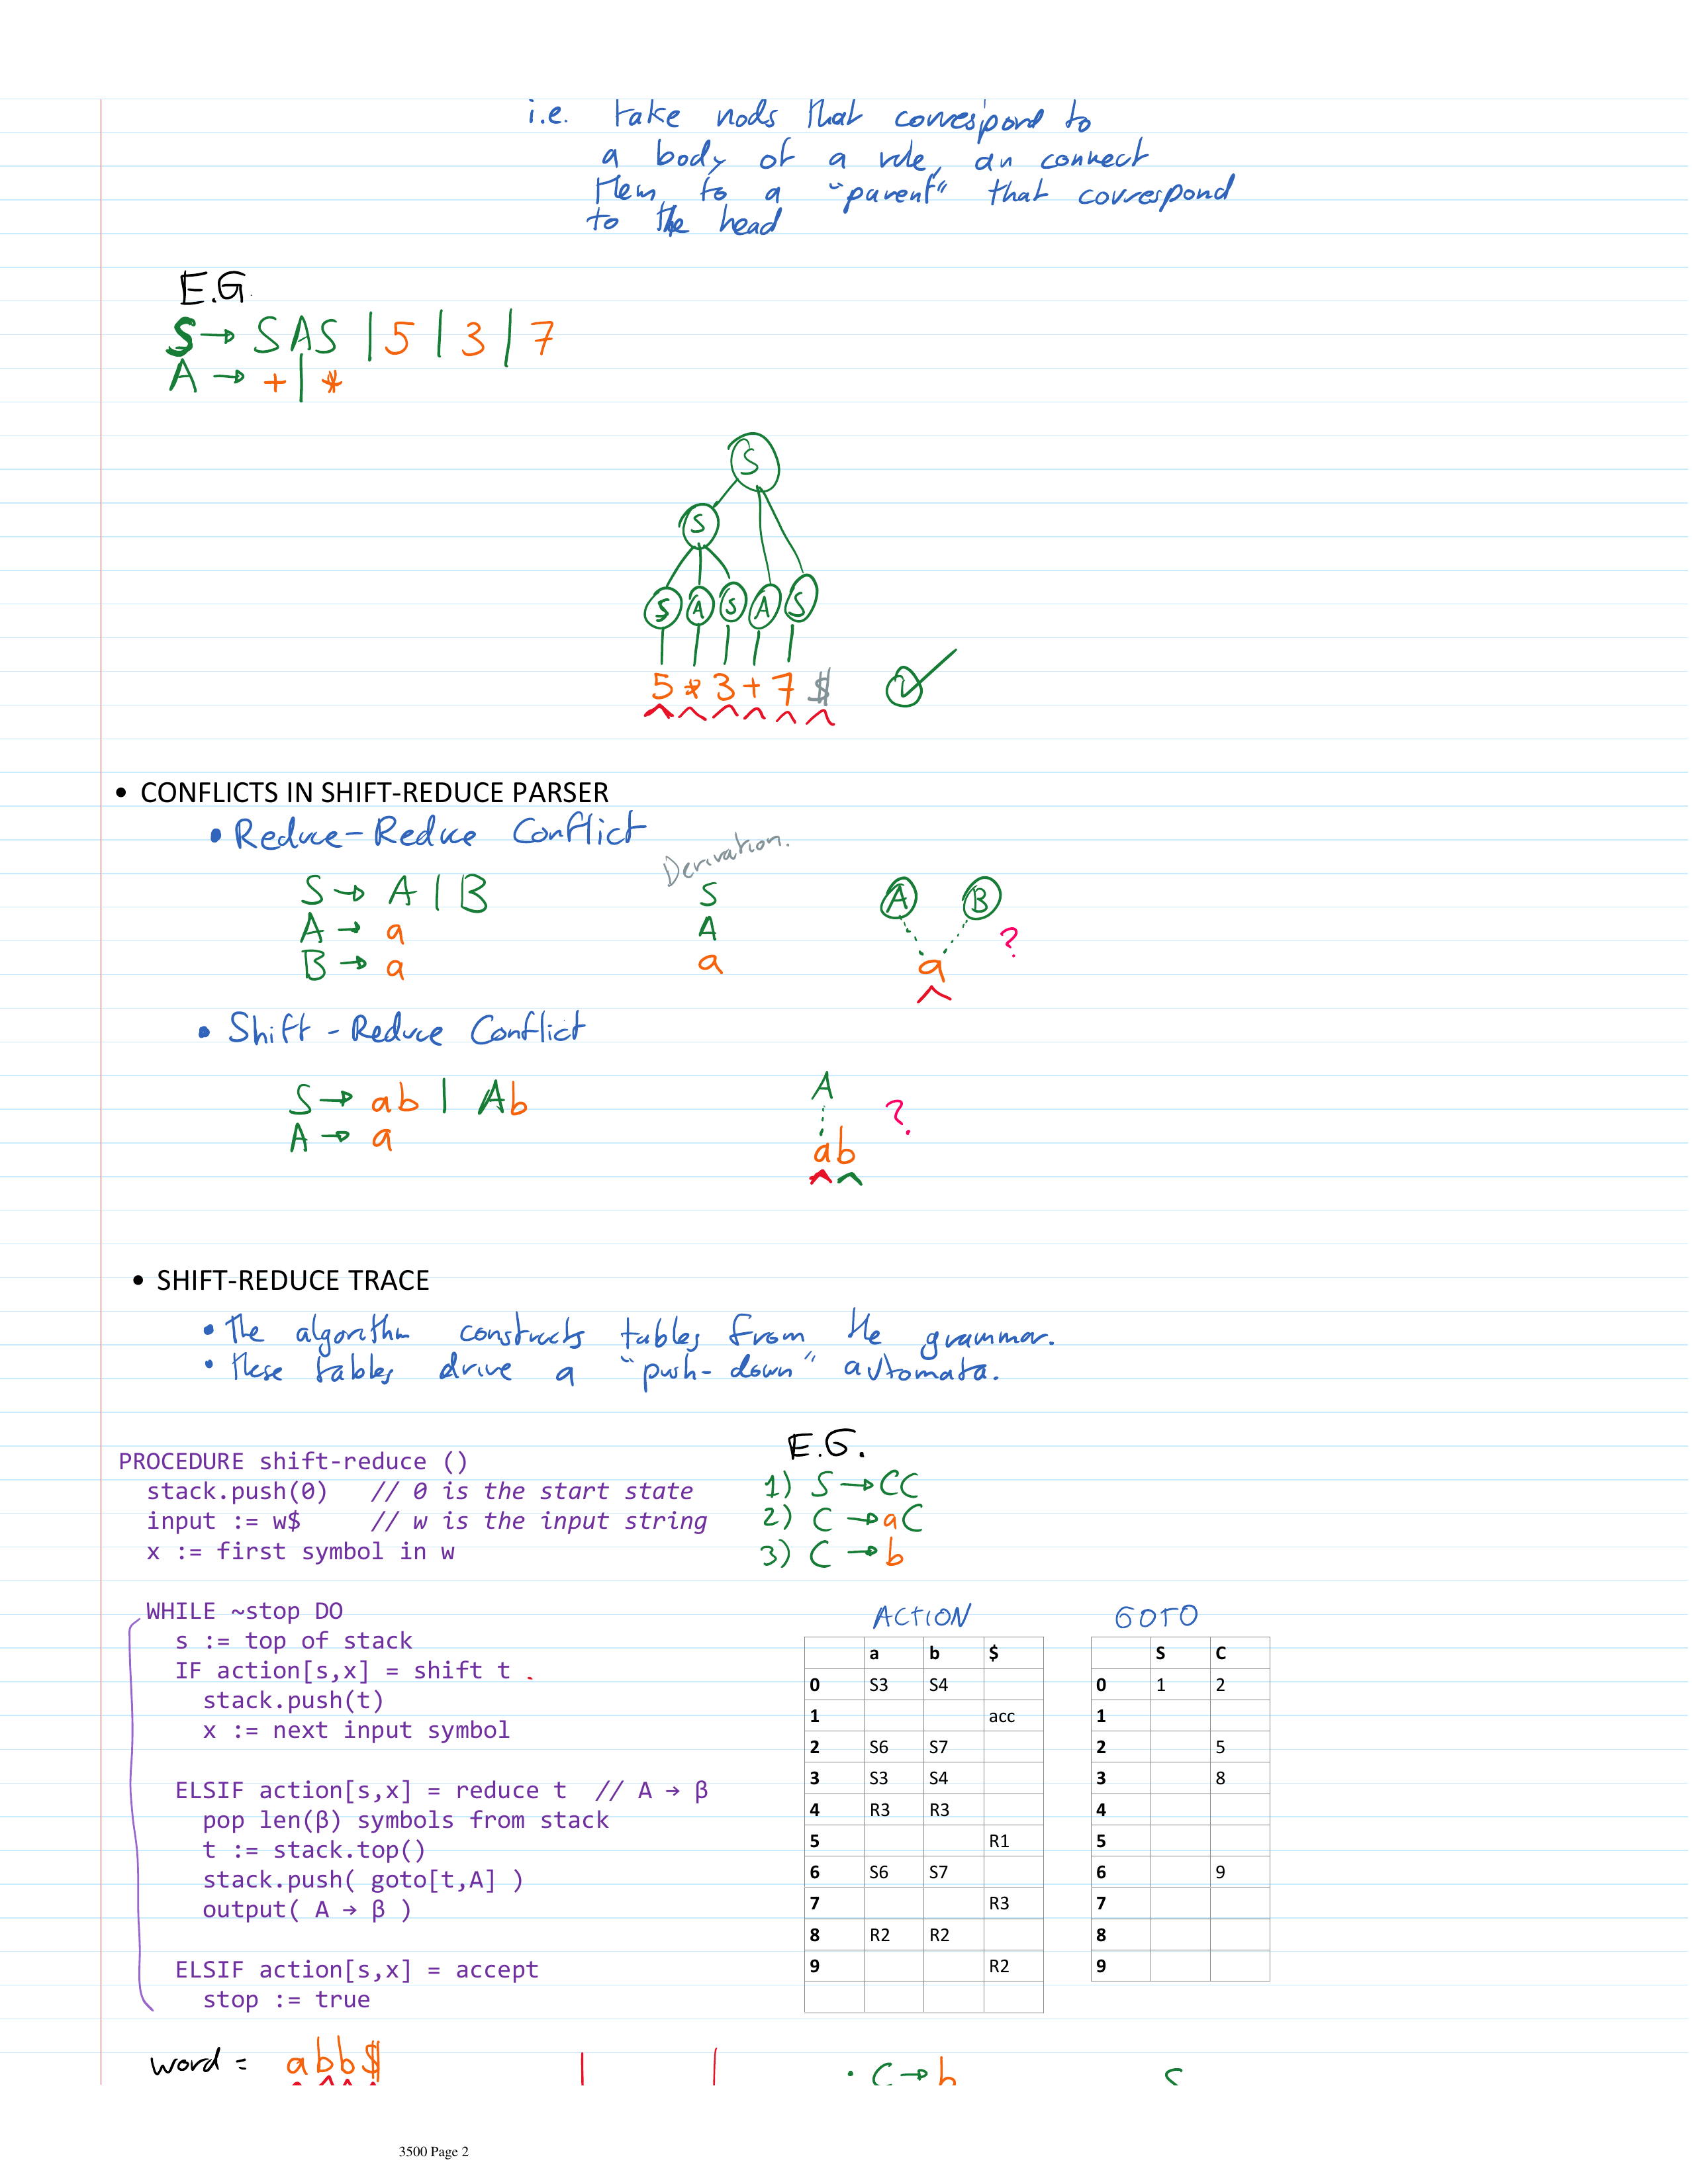 i.e. take nods that correspond to
a body of a rule, an connect
them to a "parent" that correspond
to the head
E.G.
S → SAS | 5 | 3 | 7
A → + | *
S
S
S A S A S
5 * 3 + 7 $
• CONFLICTS IN SHIFT-REDUCE PARSER
• Reduce-Reduce Conflict
Derivation.
S → A | B S A B
A → a A ?
B → a a a
• Shift-Reduce Conflict
S → ab | Ab A ?
A → a ab
• SHIFT-REDUCE TRACE
• the algorithm constructs tables from the grammar.
• these tables drive a "push-down" automata.
PROCEDURE shift-reduce ()
stack.push(0) // 0 is the start state
input := w$ // w is the input string
x := first symbol in w
WHILE ~stop DO
s := top of stack
IF action[s,x] = shift t
stack.push(t)
x := next input symbol
ELSIF action[s,x] = reduce t // A → β
pop len(β) symbols from stack
t := stack.top()
stack.push( goto[t,A] )
output( A → β )
ELSIF action[s,x] = accept
stop := true
E.G.
1) S → CC
2) C → aC
3) C → b
ACTION
a b $
0 S3 S4
1 acc
2 S6 S7
3 S3 S4
4 R3 R3
5 R1
6 S6 S7
7 R3
8 R2 R2
9 R2
GOTO
S C
0 1 2
1
2 5
3 8
4
5
6 9
7
8
9
word = abb$ • C → b
3500 Page 2